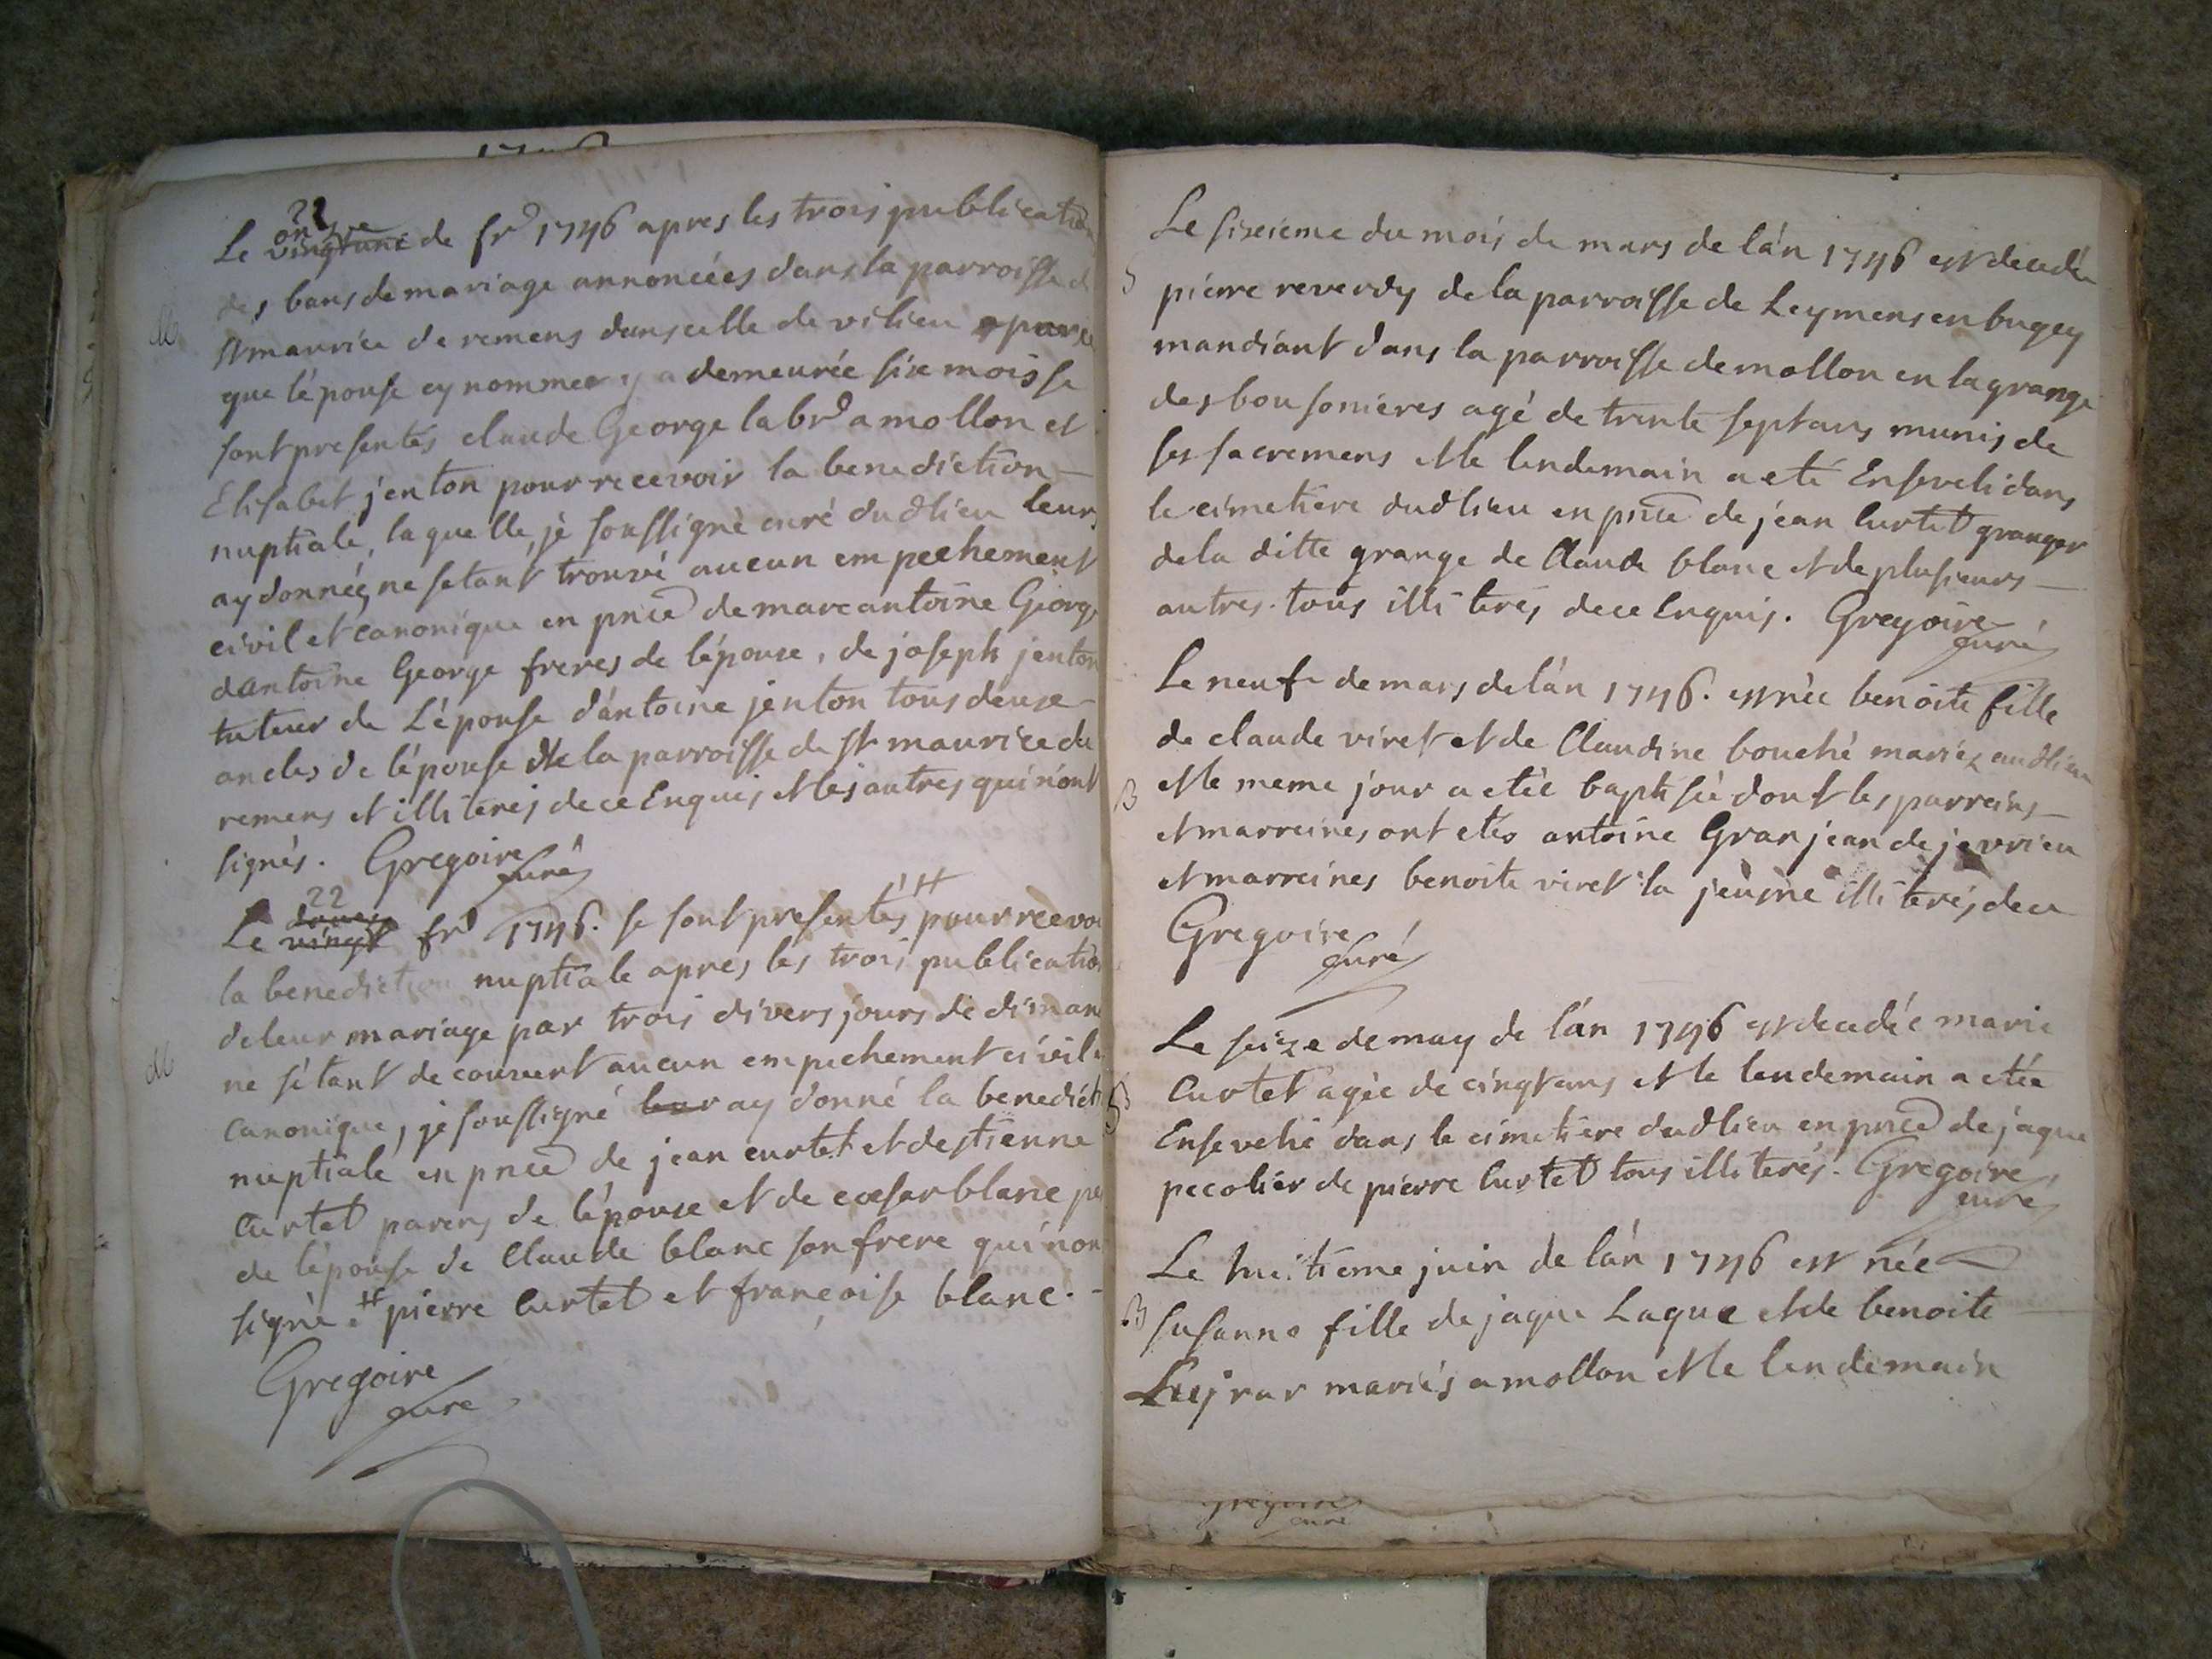 22
onzve
Le vingtune de fr 1746 apres les trois publication
des bans de mariage annoncées dans la parroisse d
st maurice de remens dans celle de vilieu
que lépouse cy nommee y a demeurée sixe mois se
sont presentés claude George labr a mollon et
Elisabet jenton pour recevoir la benediction
nuptiale, laquelle, jé soussigné curé dudlieu leurs
ay donnée, ne setant trouvé aucun empechement
civil et canonique en pnce de marc antoine George
dantoine George freres de lépoux, de joseph jenton
tuteur de Lépouse dántoine jenton tous deuxe
oncles de lépouse de la parroisse de st maurice de
remens et illiterés de ce Enquis et les autres qui nont
signés. Gregoire
curé
22
douze
Le vingt fr 1746. se sont presentés # pour recevoi
la benediction nuptiale apres les trois publication
de leur mariage par trois divers jours de diman
ne sétant decouvert aucun empechement civil
canonique, je soussigné leur ay donné la benedict
nuptiale en pnce de jean curtet et destienne
Curtet parens de lépoux et de cæsar blanc pe
de lépouse de Claude blanc son frere qui non
signé. # pierre Curtet et françoise blanc.
Gregoire
curé
Le sixeieme du mois de mars de lán 1746 est decedée
S
piérre reverdy de la parroisse de Leymens en bugey
mandiant dans la parroisse de mollon en la grange
des bousonieres agé de trente septans munis de
ses sacremens et le lendemain a eté Enseveli dans
le cimetiere dudlieu en pnce de jean Curtet granger
de la ditte grange de Claude blanc et de plusieurs
autres tous illiterés de ce Enquis. Gregoire
curé
Le neuf de mars de lán 1746. est née benoite fille
de claude viret et de Claudine bouché mariez audlieu
B
et le meme jour a etée baptisée dont les parreins
et marreines ont etés antoine Granjean de jevrieu
et marreines benoite viret la jeúsne illiterés de ce
Gregoire
curé
Le seize de may de lán 1746 est decedée marie
S
Curtet agée de cinqtans et le lendemain a etée
Ensevelie dans le cimetiere dudlieu en pnce de jaque
pecolier de pierre Curtet tous illiterés. Gregoire
curé
Le huitieme juin de lán 1746 est née
B
susanne fille de jaque Laque et de benoite
Lujrar mariés a mollon et le lendemain
Gregoire
curé